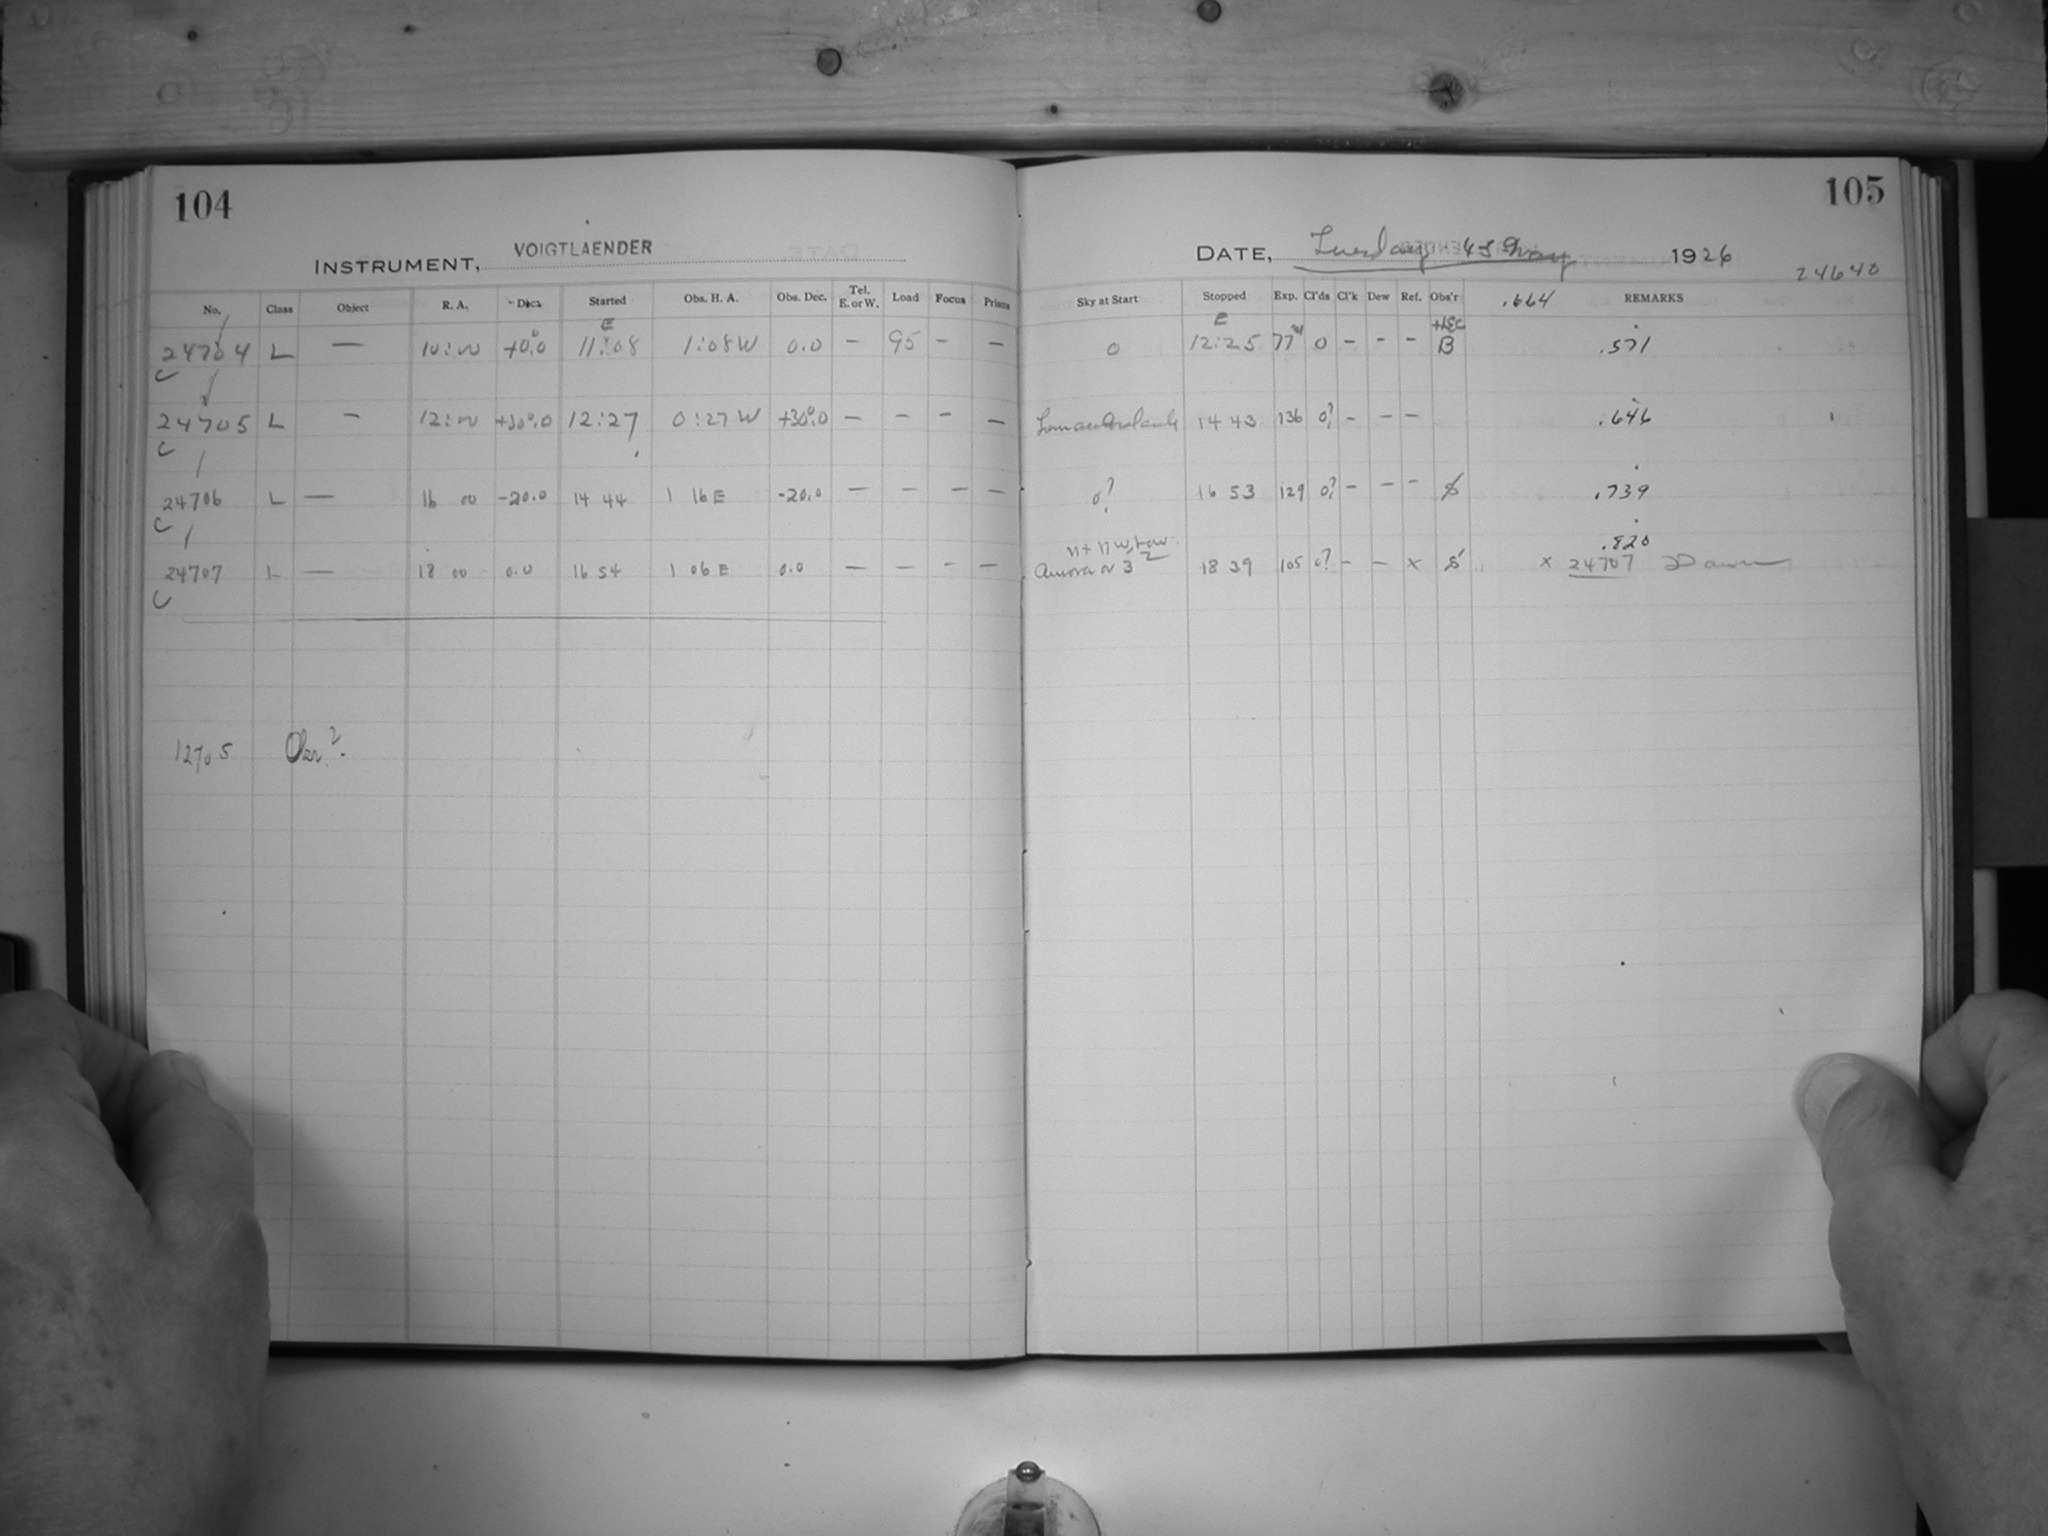 104
INSTRUMENT, VOIGTLAENDER
No. Class Object R. A. Dec. Started Obs. H. A. Obs. Dec. Tel. E. or W. Load Focus Prisms
24704 L — 10:00 +0°.0 E 11:08 1:08 W 0.0 — 95 — —
C
24705 L — 12:00 +30°.0 12:27 0:27 W +30°.0 — — — —
C
24706 L — 16 00 -20.0 14 44 1 16 E -20.0 — — — —
C
24707 L — 18 00 0.0 16 54 1 06 E 0.0 — — — —
C
12705 Obr?
105
DATE, Tuesday 4 May 1926
24640
Sky at Start Stopped Exp. Cl'ds Cl'k Dew Ref. Obs'r .664 REMARKS
0 E 12:25 77m 0 - - - B .571
14 43 136 0? - - - .646
0? 16 53 129 0? - - - S .739
n + nw, low
Aurora 2 or 3 18 39 105 0? - - x S .820
x 24707 Dawn